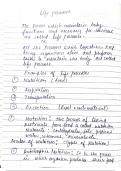 Life process
The process which maintain body
functions and necessary for survival
are called life process
All the processes which together keep
living organisms alive and perform
task to maintain are body are called
life process
Examples of life process
Nutrition (food)
Respiration
Transportation
Excretion
Nutrition: The process of taking
nutrients from food is called nutrition
Nutrients: carbohydrate, fats, protein
water, vitamins, minerals
Modes of nutrition (types of Nutrition)
Autotrophic Nutrition: It is the process
in which organism produce their food